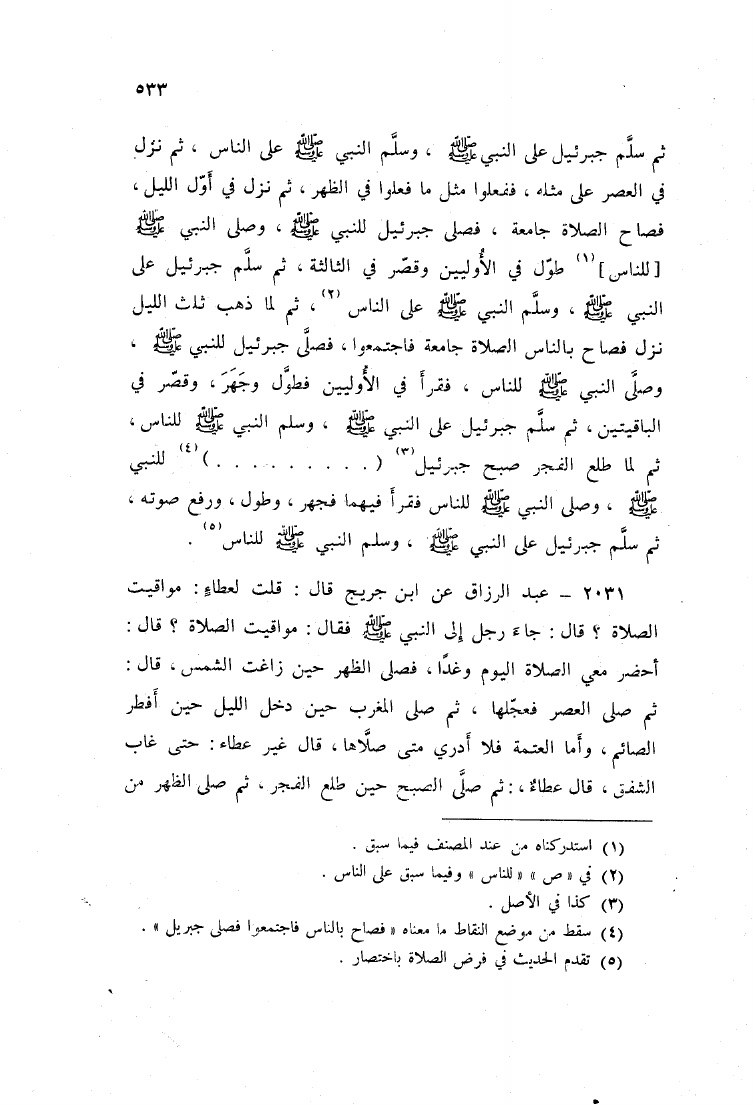 ٥٣٣
ثم سلَّم جبرئيل على النبي ﷺ ، وسلَّم النبي ﷺ على الناس ، ثم نزل
في العصر على مثله ، ففعلوا مثل ما فعلوا في الظهر ، ثم نزل في أوّل الليل ،
فصاح الصلاة جامعة ، فصلى جبرئيل للنبي ﷺ ، وصلى النبي ﷺ
[ للناس ] (١) طوّل في الأُوليين وقصّر في الثالثة ، ثم سلَّم جبرئيل على
النبي ﷺ ، وسلَّم النبي ﷺ على الناس (٢) ، ثم لما ذهب ثلث الليل
نزل فصاح بالناس الصلاة جامعة فاجتمعوا ، فصلَّى جبرئيل للنبي ﷺ ،
وصلَّى النبي ﷺ للناس ، فقرأ في الأُوليين فطوَّل وجَهَرَ ، وقصّر في
الباقيتين ، ثم سلَّم جبرئيل على النبي ﷺ ، وسلم النبي ﷺ للناس ،
ثم لما طلع الفجر صبح جبرئيل (٣) ( . . . . . . . . . ) (٤) للنبي
ﷺ ، وصلى النبي ﷺ للناس فقرأ فيهما فجهر ، وطول ، ورفع صوته ،
ثم سلَّم جبرئيل على النبي ﷺ ، وسلم النبي ﷺ للناس (٥) .
٢٠٣١ – عبد الرزاق عن ابن جريج قال : قلت لعطاءٍ : مواقيت
الصلاة ؟ قال : جاءَ رجل إلى النبي ﷺ فقال : مواقيت الصلاة ؟ قال :
أحضر معي الصلاة اليوم وغدًا ، فصلى الظهر حين زاغت الشمس ، قال :
ثم صلى العصر فعجّلها ، ثم صلى المغرب حين دخل الليل حين أفطر
الصائم ، وأما العتمة فلا أدري متى صلَّاها ، قال غير عطاء : حتى غاب
الشفق ، قال عطاءٌ ، : ثم صلَّى الصبح حين طلع الفجر ، ثم صلى الظهر من
(١) استدركناه من عند المصنف فيما سبق .
(٢) في « ص » « للناس » وفيما سبق على الناس .
(٣) كذا في الأصل .
(٤) سقط من موضع النقاط ما معناه « فصاح بالناس فاجتمعوا فصلى جبريل » .
(٥) تقدم الحديث في فرض الصلاة باختصار .